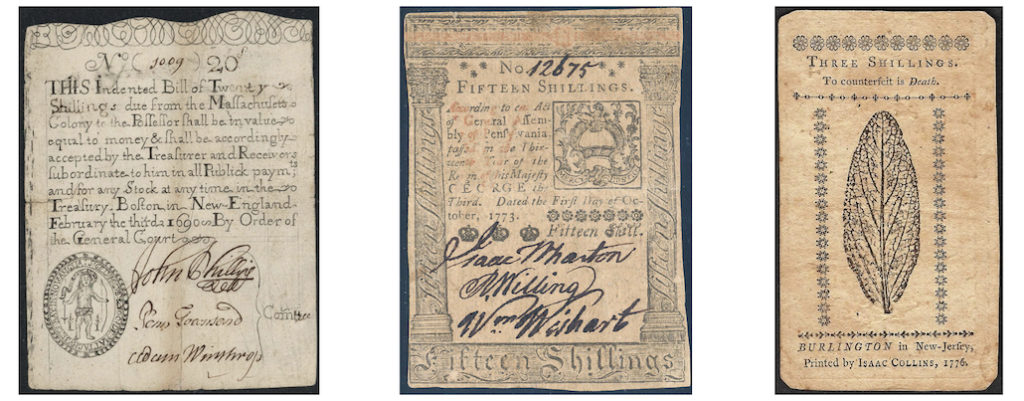 No (1009) 20s
THIS Indented Bill of Twenty
Shillings due from the Massachusets
Colony to the Possessor shall be in value
equal to money & shall be accordingly
accepted by the Treasurer and Receivers
subordinate to him in all Publick paymts
and for any Stock at any time in the
Treasury. Boston in New-England
February the third 1690 By Order of
the General Court
John Phillips
Penn Townsend
Adam Winthrop
Comttee
No. 12675
FIFTEEN SHILLINGS.
According to an Act
of General Assem-
bly of Pensylvania
passed in the Thir-
teenth Year of the
Reign of his Majesty
GEORGE the
Third. Dated the First Day of Oc-
tober, 1773.
Fifteen Shill.
Isaac Wharton
R Willing
Wm Wishart
Fifteen Shillings
Fifteen Shillings
Fifteen Shillings
THREE SHILLINGS.
To counterfeit is Death.
BURLINGTON in New-Jersey,
Printed by ISAAC COLLINS, 1776.